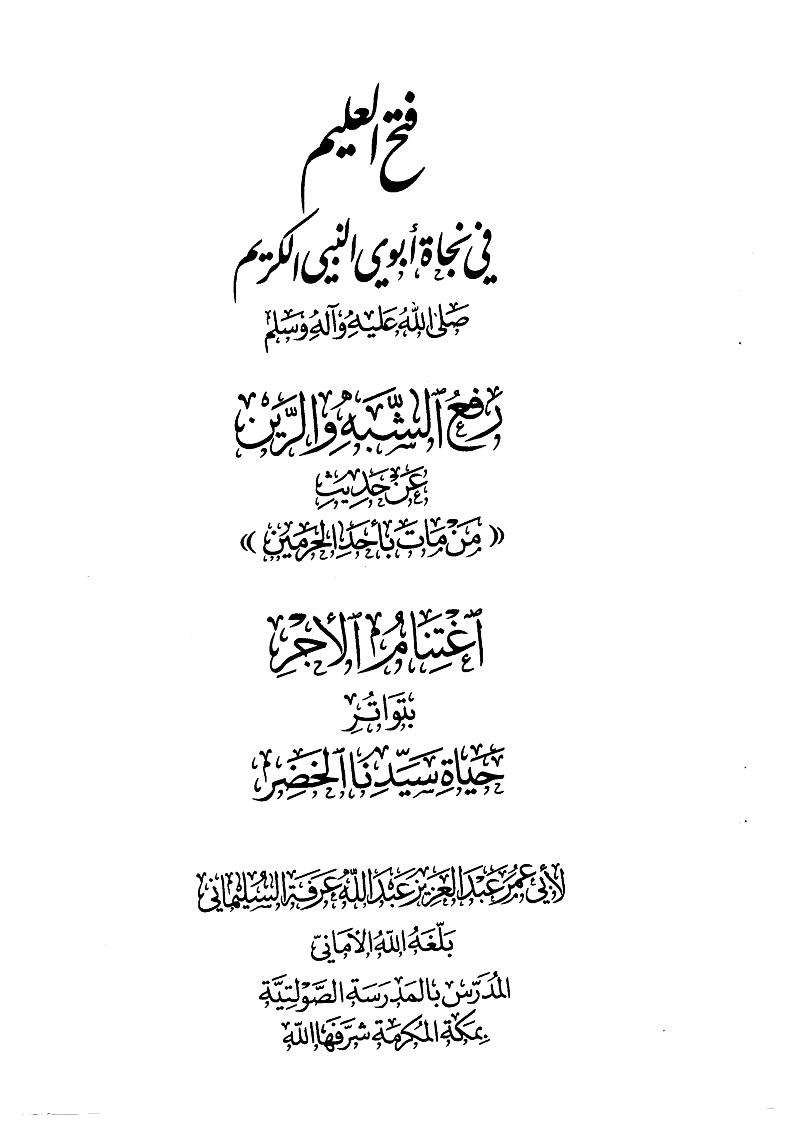 فتح العليم
في نجاة أبوي النبي الكريم
صَلى اللهُ عَليْهِ وَآلهِ وَسَلم
رَفعُ ٱلشُّبَهِ وَالرَّيْنِ
عَنْ حَدِيثِ
« مَنْ مَاتَ بأحَدِ الحَرَمَيْنِ »
ٱغْتِنَامُ ٱلأَجْرِ
بتَوَاتُرِ
حَيَاةِ سَيِّدِنَا ٱلخَضِرِ
لأبي عُمَرَ عَبْدِ العَزِيزِ عَبْدِ اللَّهِ عَرَفَة السُّلَيْمَانِي
بَلَّغَهُ اللهُ الأمَانيّ
المُدَرِّس بالمَدرَسَةِ الصَّوْلَتِيَّةِ
بمَكةَ المُكرمَةِ شرَّفَهَا اللهُ